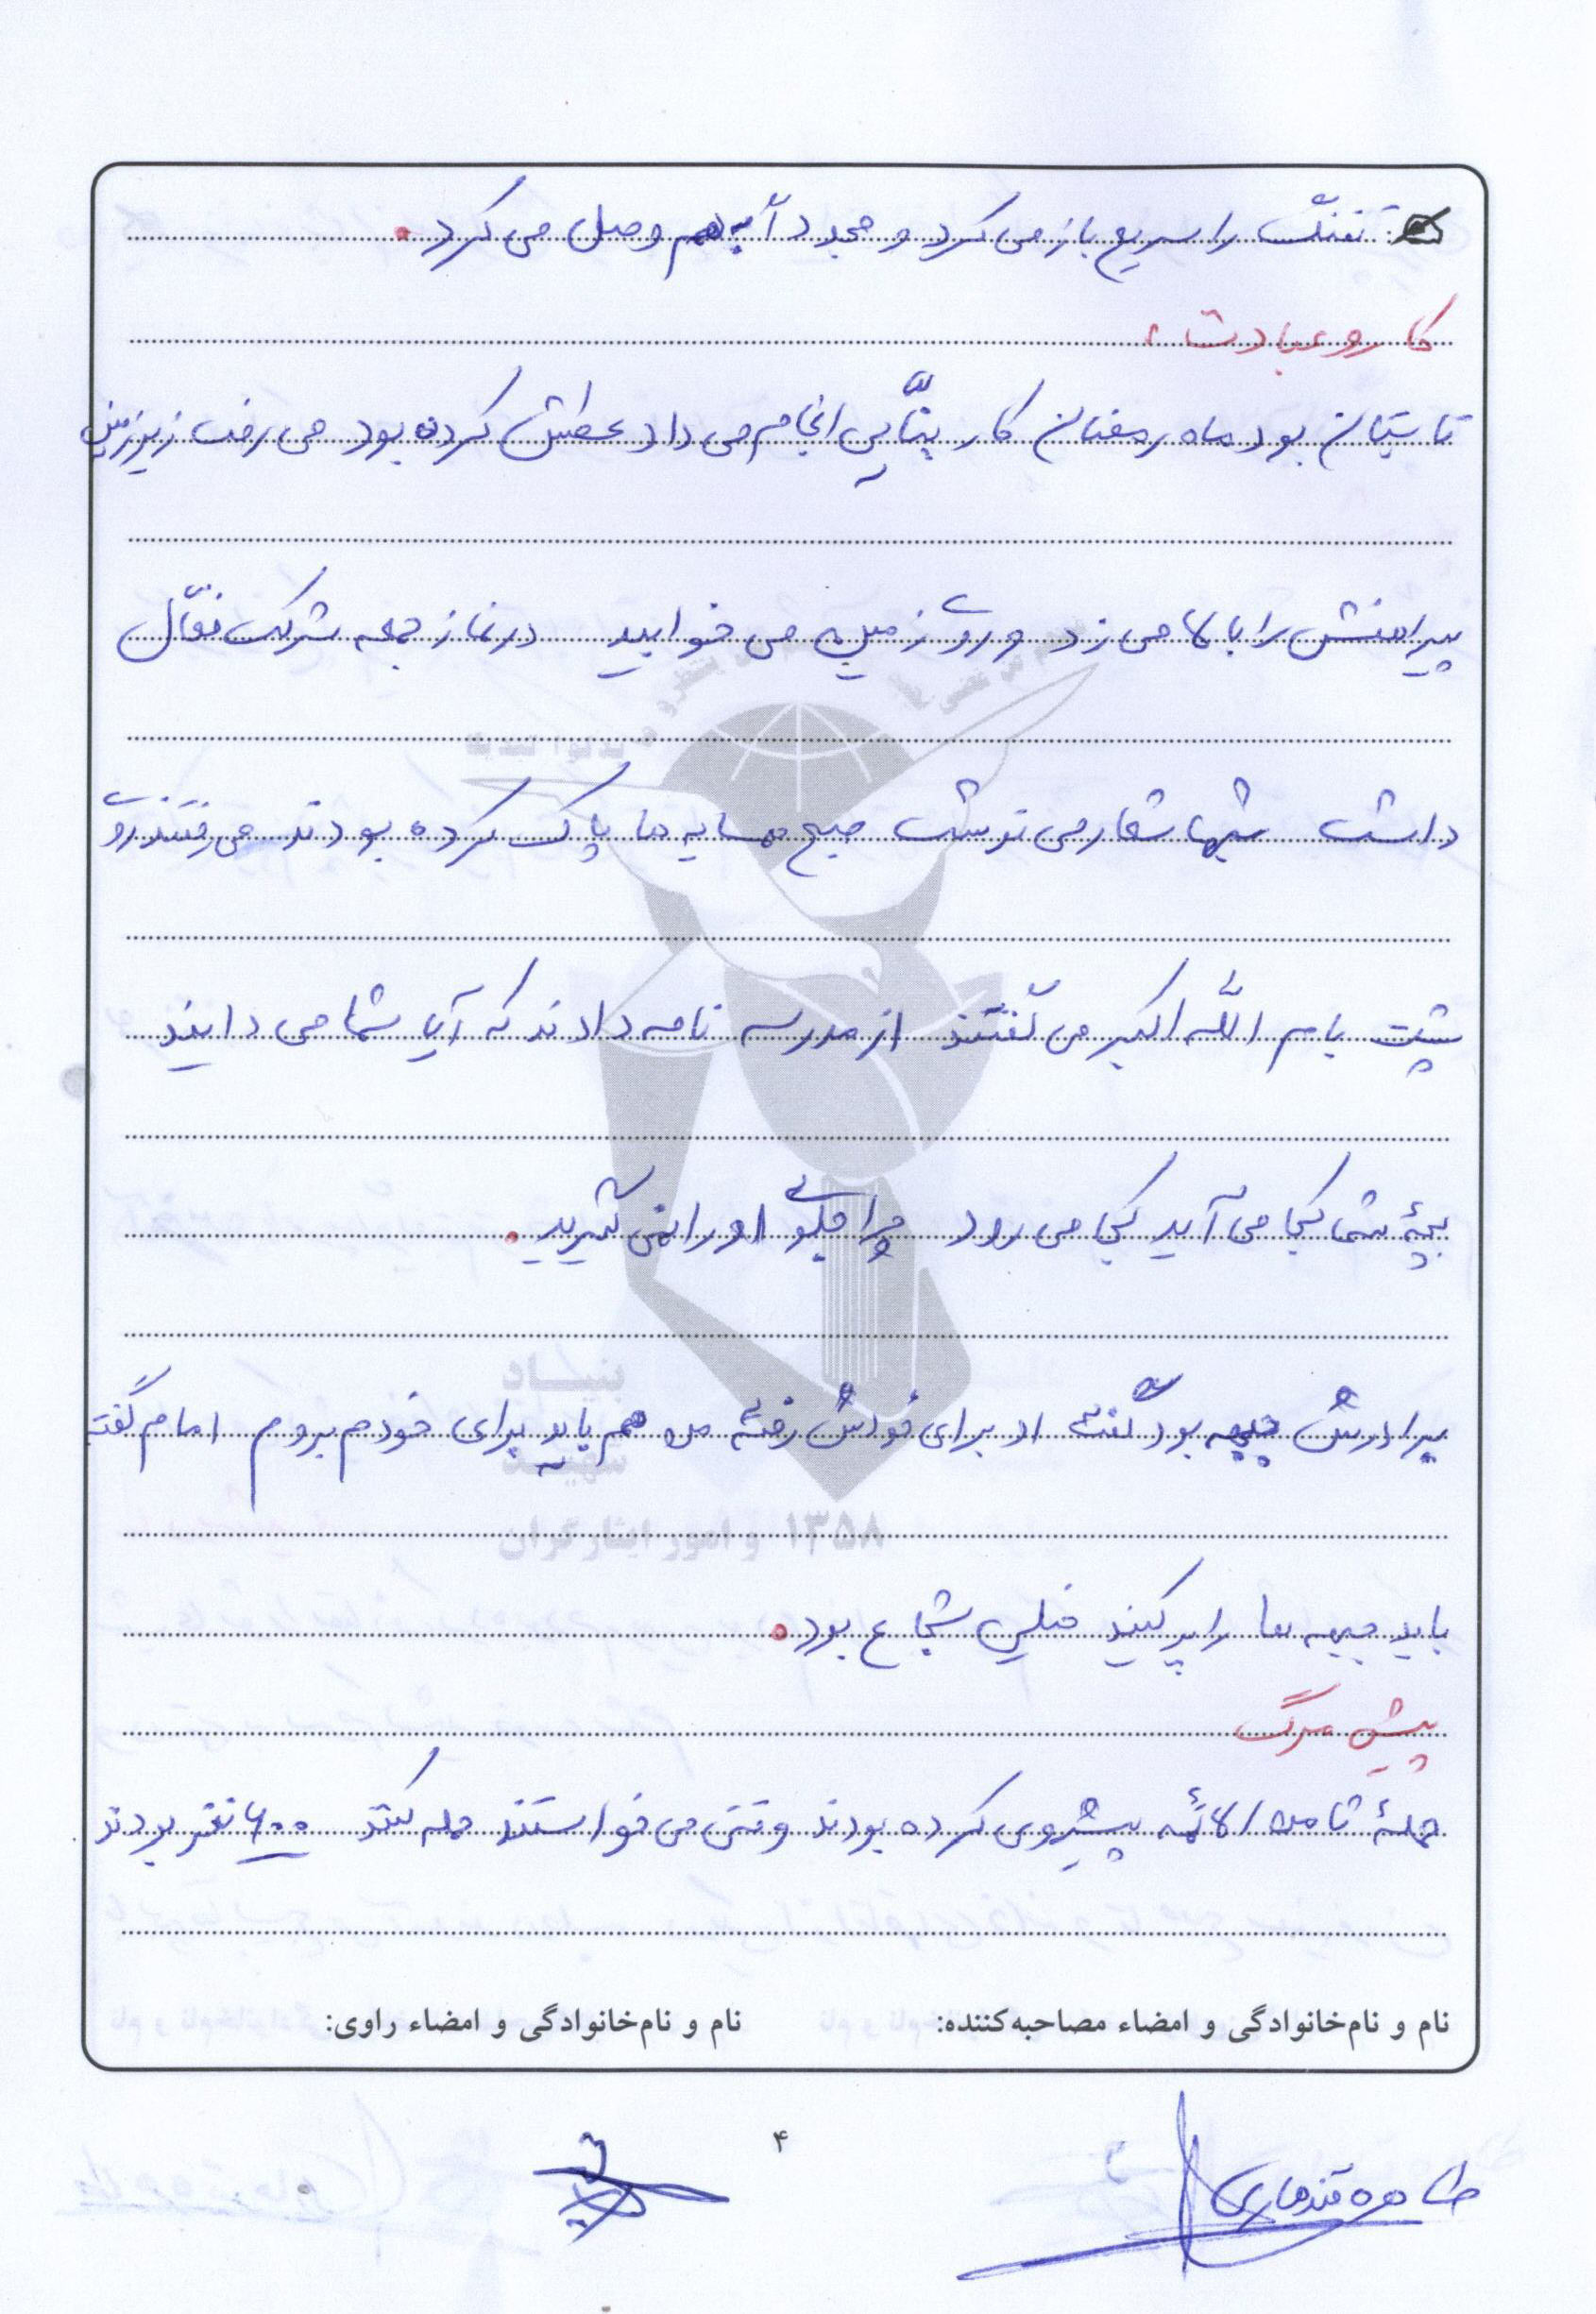 تفنگ را سریع باز می کرد و مجدداً به هم وصل می کرد.
کار و عبادت:
تابستان بود ماه رمضان کار بنّایی انجام می داد عطش کرده بود می رفت زیرزمین
پیراهنش را بالا می زد و روی زمین می خوابید در نماز جمعه شرکت فعّال
داشت شبها شعار می نوشت صبح همسایه ها پاک کرده بودند می رفتند روی
پشت بام الله اکبر می گفتند از مدرسه نامه دادند که آیا شما می دانید
بچۀ شما کجا می آید کجا می رود چرا جلوی او را نمی گیرید.
برادرش جبهه بود گفت او برای خودش رفته من هم باید برای خودم بروم امام گفته
باید جبهه ها را پر کنید خیلی شجاع بود.
پیش مرگ
حملۀ ثامن الائمه پیشروی کرده بودند وقتی می خواستند حمله کنند ۶۰۰ نفر بودند
نام و نام‌خانوادگی و امضاء مصاحبه‌کننده: نام و نام‌خانوادگی و امضاء راوی:
۴
طاهره قندهاری
بنیاد
شهید
و امور ایثارگران ۱۳۵۸